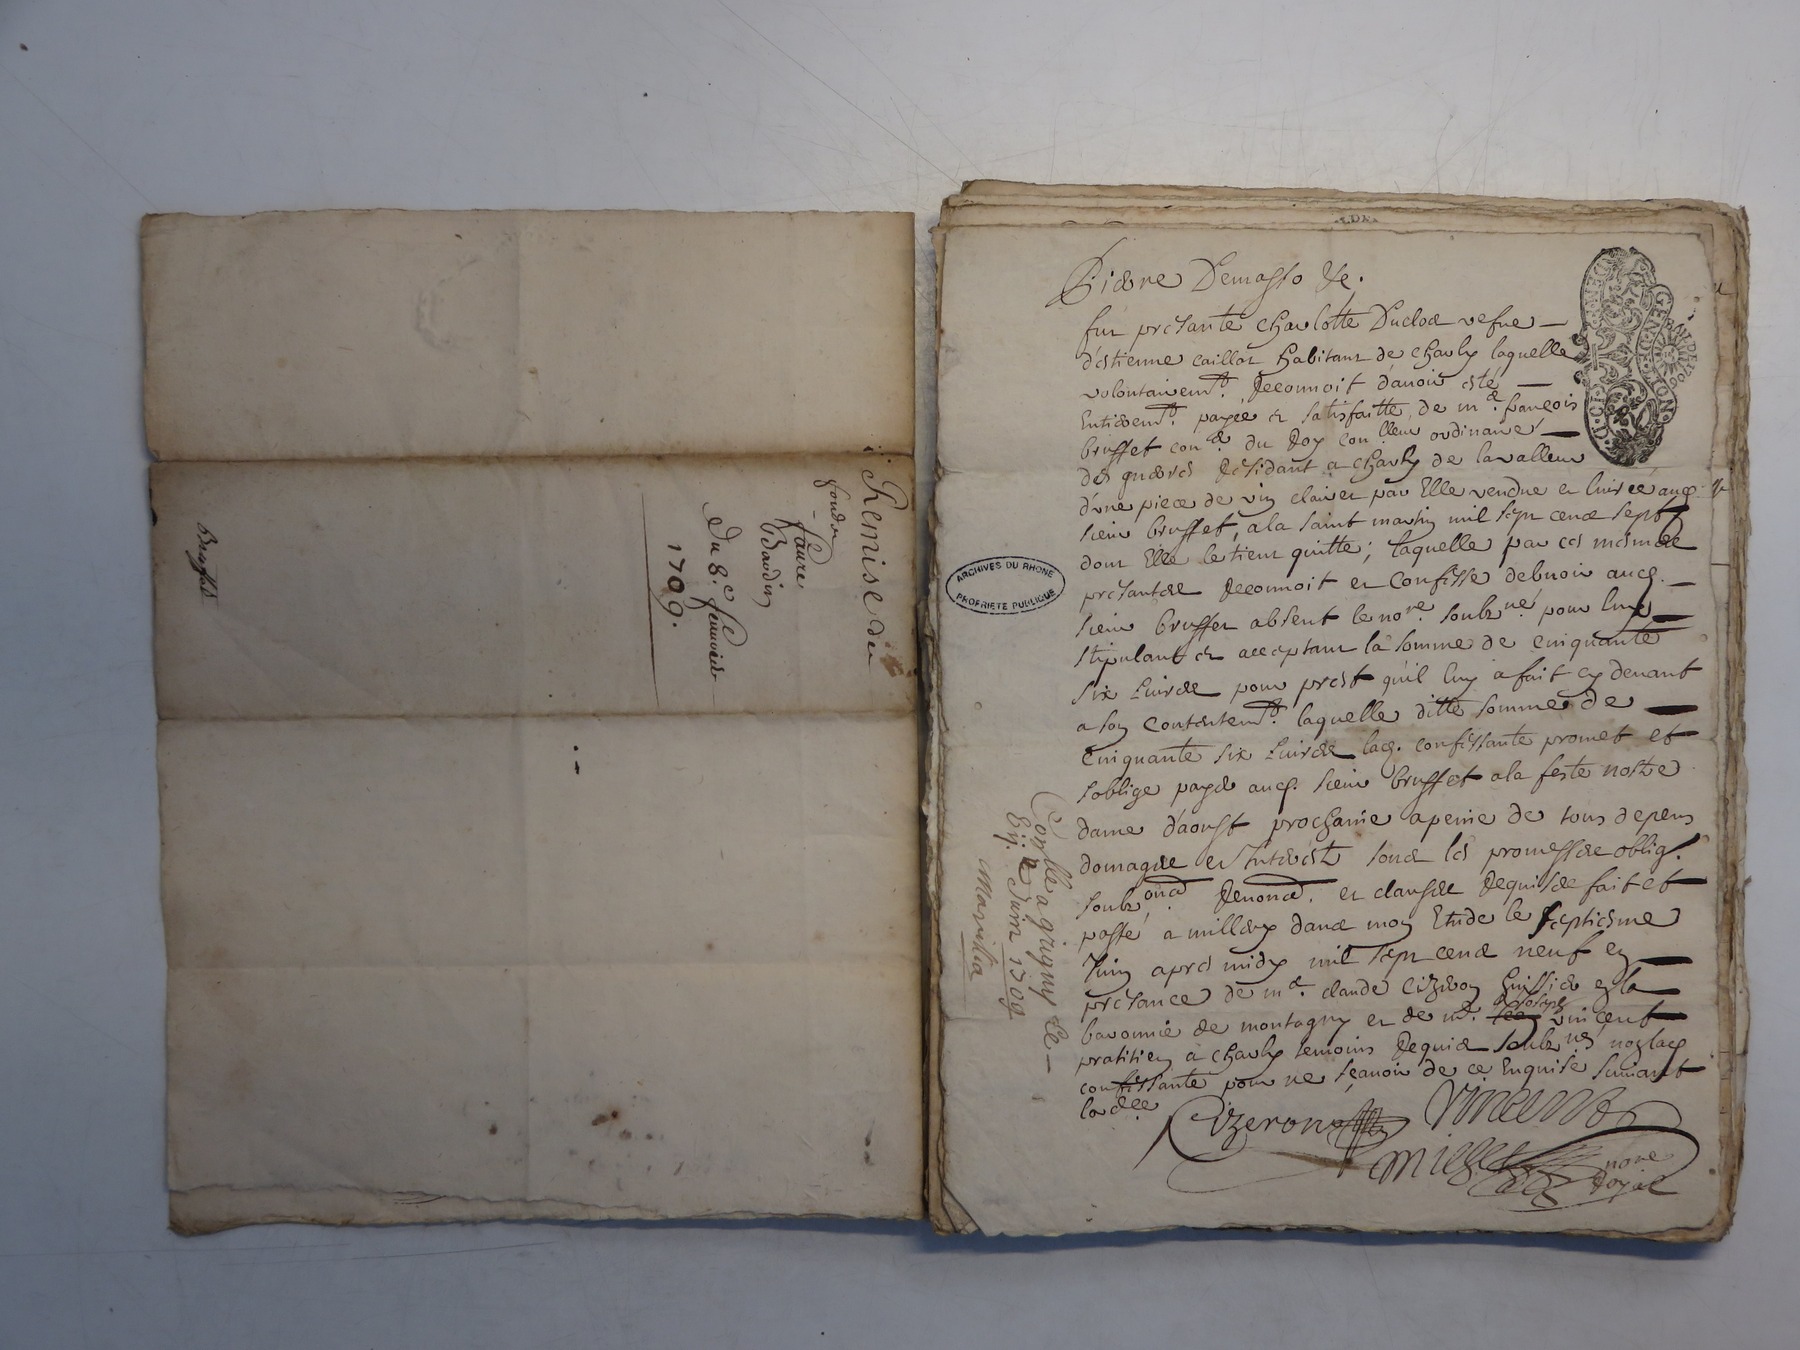 Remise de
fondon
faure
Baudin
du 8.e feuvrier
1709.
Brossard
Pierre Demasso &c.
fut presante Charlotte Duclos vefue
d'estienne caillot habitant de Charly laquelle
volontairemt. Reconnoit d'auoir esté
Entieremt. payée et satisfaitte de mre. françois
brusset con.er du Roy con.lleur ordinaire
des guerres Residant a Charly de la valleur
d'vne piece de vin clairet par Elle vendue et liurée aud.
sieur brusset, a la saint martin mil sept cens sept
dont Elle le tient quitte; laquelle par ces mesmes
presantes Reconnoit et Confesse debuoir aud.
sieur brusset absent le no.re soubz.né pour luy
stipulant et acceptant la somme de cinquante
six Liures pour prest qu'il luy a fait cy deuant
a son Contentemt. laquelle ditte somme de
Cinquante six Liures lad. confessante promet et
s'oblige payer aud. sieur brusset a la feste nostre
dame d'aoust prochaine a peine de tous depens
domages et Interests sous les promesses oblig.
soubz.ons Renon.ons et clauses Requises fait et
passé a millery dans mon Etude le septiesme
Juin apres midy mil sept cens neuf en
presance de me. claude Cizeron huissier en la
baronnie de montagny et de me. Joseph vincent
pratitien a Charly temoins Requis soubz.nés non lad.
confessante pour ne sçauoir de ce Enquise suiuant
lord.ce
Cizeron Vincent
Millet no.re
Royal
Con.llé a grigny le
Eij.e Juin 1709
ARCHIVES DU RHONE
PROPRIETE PUBLIQUE
GEN. D. LION